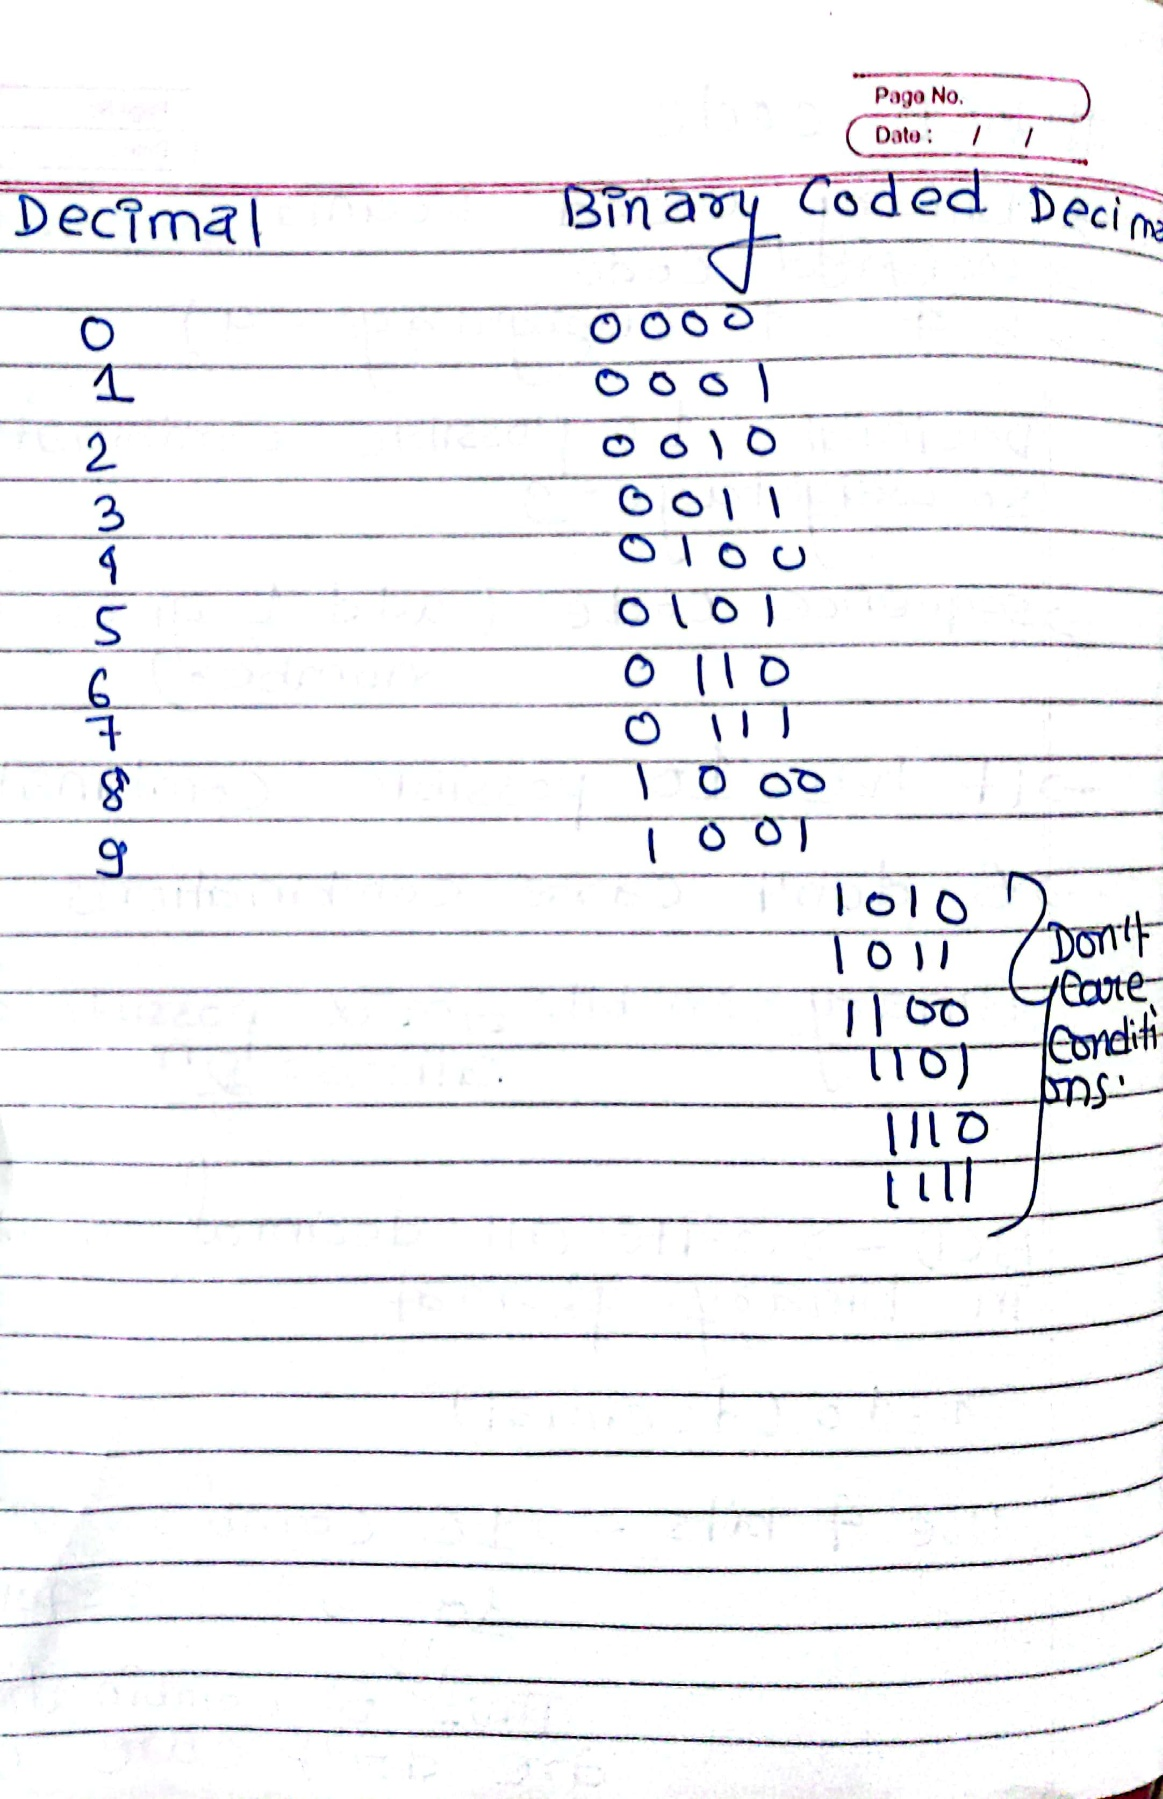 Page No.
Date: / /
Decimal Binary Coded Decima
0 0000
1 0001
2 0010
3 0011
4 0100
5 0101
6 0110
7 0111
8 1000
9 1001
1010
1011 Don't
1100 Care
1101 Conditi
1110 ons.
1111